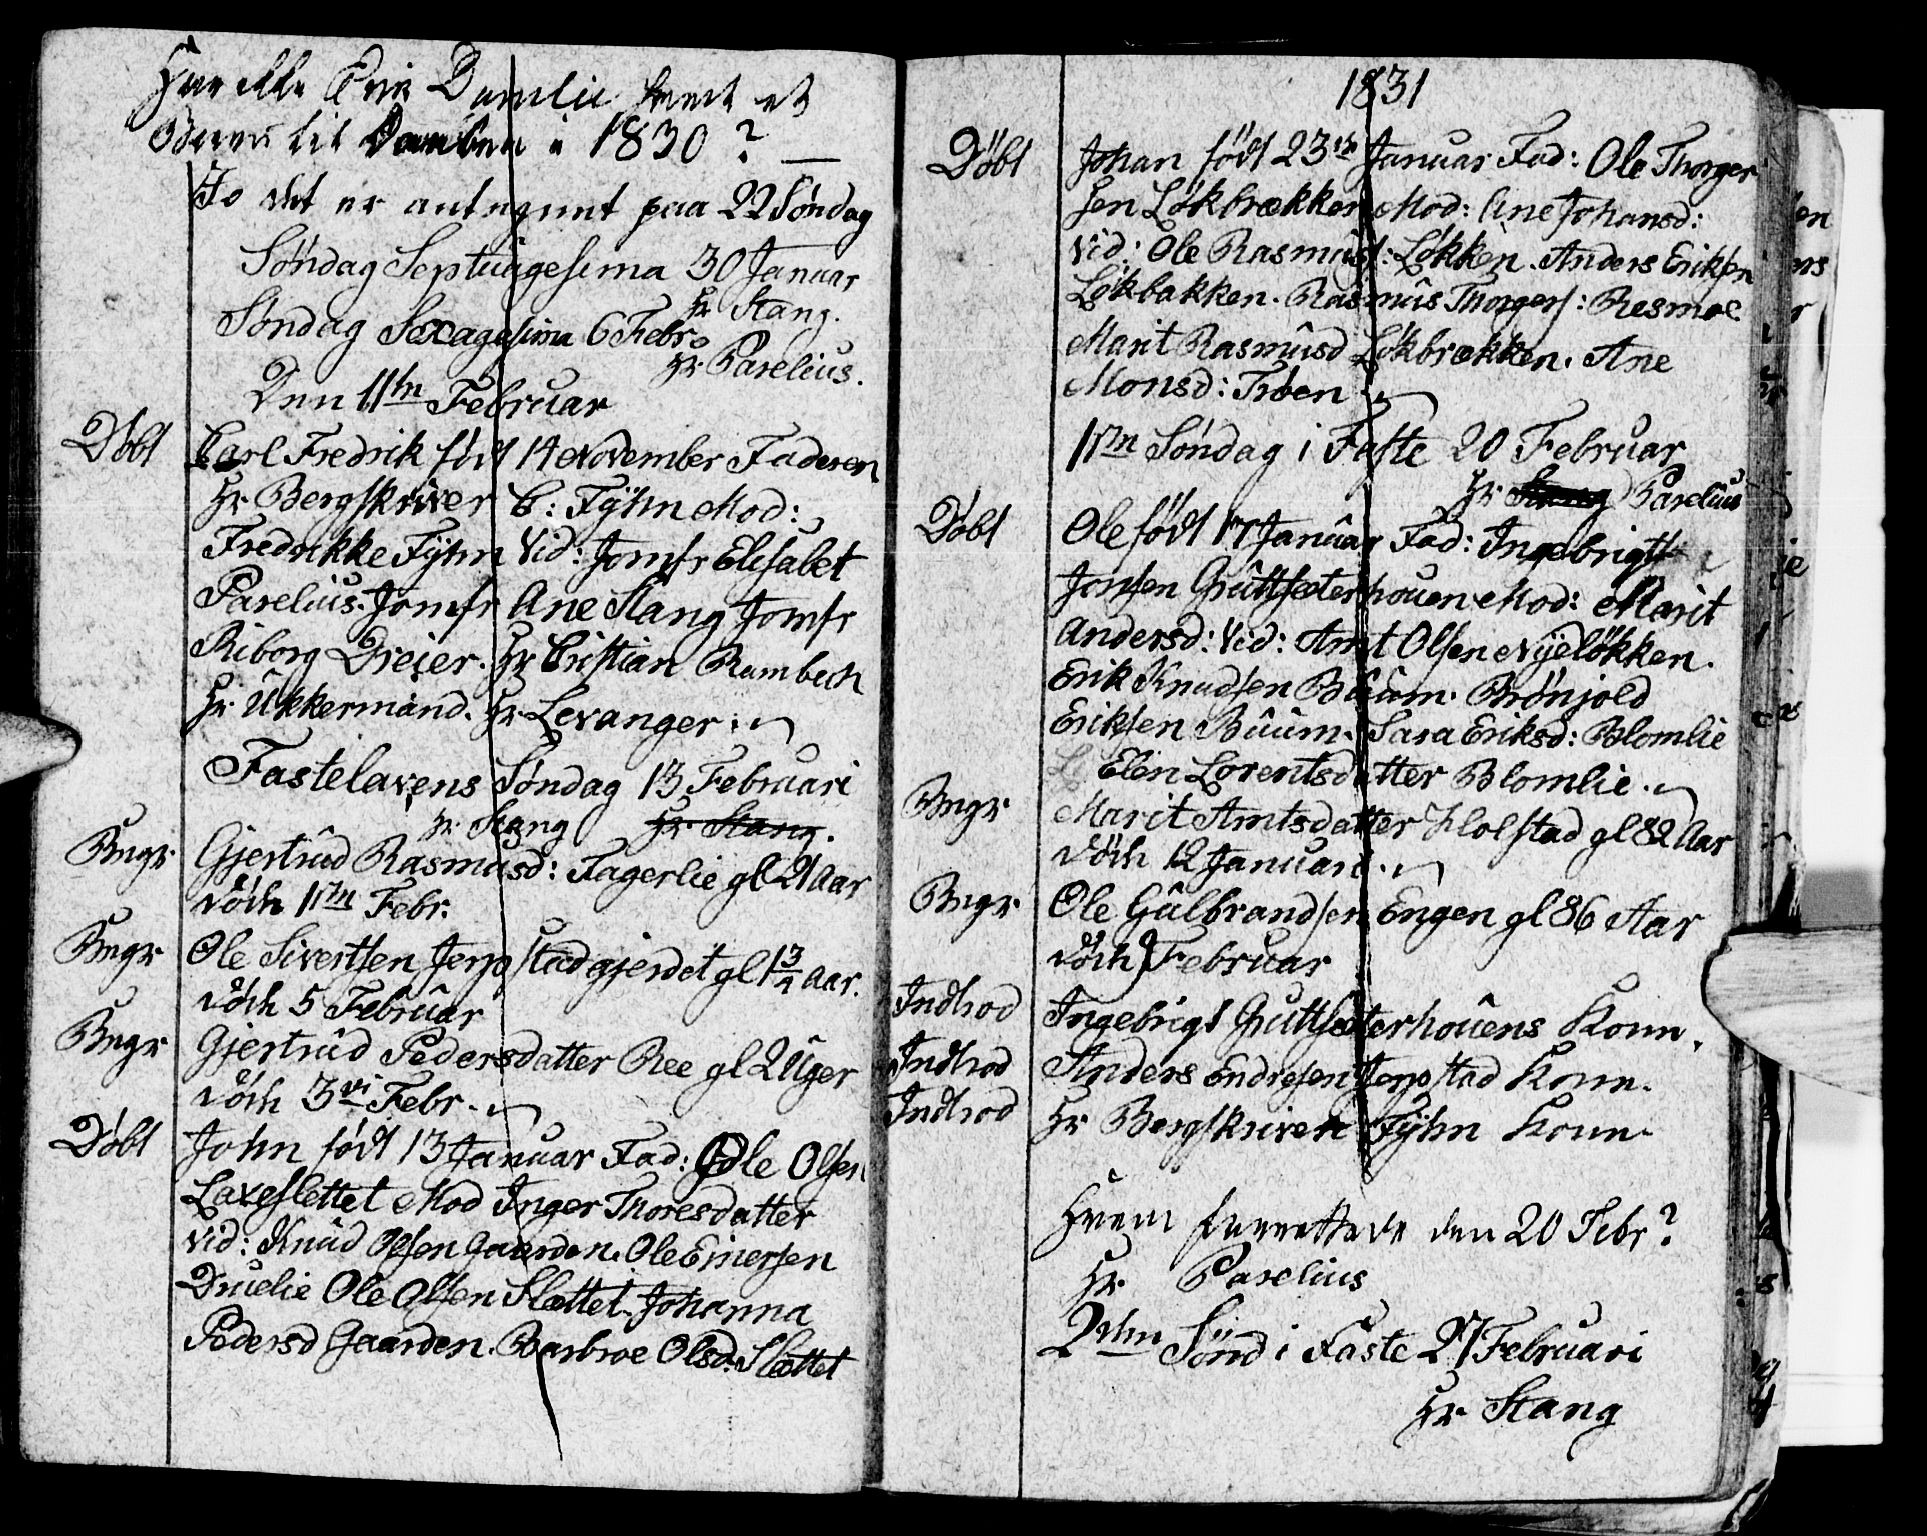 Har ikke Erik Damlie havt et
Barn til Daaben i 1830? —
Jo det er antegnnet paa 22 Söndag
Söndag Septuagesima 30 Januar
Hr Stang.
Söndag Sexagesima 6 Febr.
Hr Parelius.
Den 11te Februar
Döbt Carl Fredrik födt 14 November Faderen
Hr Bergskriver C: Fÿhn Mod:
Fredrikke Fÿhn Vid: Jomfr Elisabet
Parelius. Jomfr Ane Stang Jomfr
Riborg Dreier. Hr Cristian Rambech
Hr. Ukkermand. Hr. Levanger.
Fastelavens Söndag 13 Februari
Hr. Stang Hr. Stang.
Begr Gjertrud Rasmusd: Fagerlie gl 21 Aar
död 1ste Febr.
Begr Ole Sivertsen Jerpstadgjerdet gl 1 3/4 Aar.
död 5 Februar
Begr Gjertrud Pedersdatter Ree gl 2 Uger
död 3die Febr.
Döbt John födt 13 Januar Fad: Ole Olsen
Laveslettet Mod Inger Thoresdatter
Vid: Knud Olsen Gaarden. Ole Einersen
Druelie Ole Olsen Slettet. Johanna
Pedersd Gaarden. Barbroe Olsd. Slettet
1831
Döbt Johan födt 23de Januar Fad: Ole Thorger
sen Løkbrækken Mod: Ane Johansd:
Vid: Ole Rasmusf: Løkken. Anders Eriksen
Løkbakken. Rasmus Thorgers: Resmoe
Marit Rasmusd Løkbrækken. Ane
Monsd: Tröen
1ste Söndag i Faste 20 Februar
Hr Stang Parelius
Döbt Ole födt 17 Januar Fad: Ingebrigt
Jonsen Gruttsæterhouen Mod: Marit
Andersd: Vid: Arnt Olsen Nÿeløkken.
Erik Knudsen Buum. Brönjold
Eriksen Buum. Sara Eriksd: Blomlie
Elen Lorentsdatter Blomlie.
Begr Marit Arntsdatter Holstad gl 82 Aar
död 12 Januari.
Begr Ole Gulbrandsen Engen gl 86 Aar
död 9 Februar
Indtrod Ingebrigt Gruttsæterhouens Kone.
Indtrod Anders Endresen Jerpstad Kone.
Indtrod Hr Bergskriver Fÿhn Kone
Hvem forrettede den 20 Febr?
Hr Parelius
2den Sönd i Faste 27 Februari
Hr. Stang